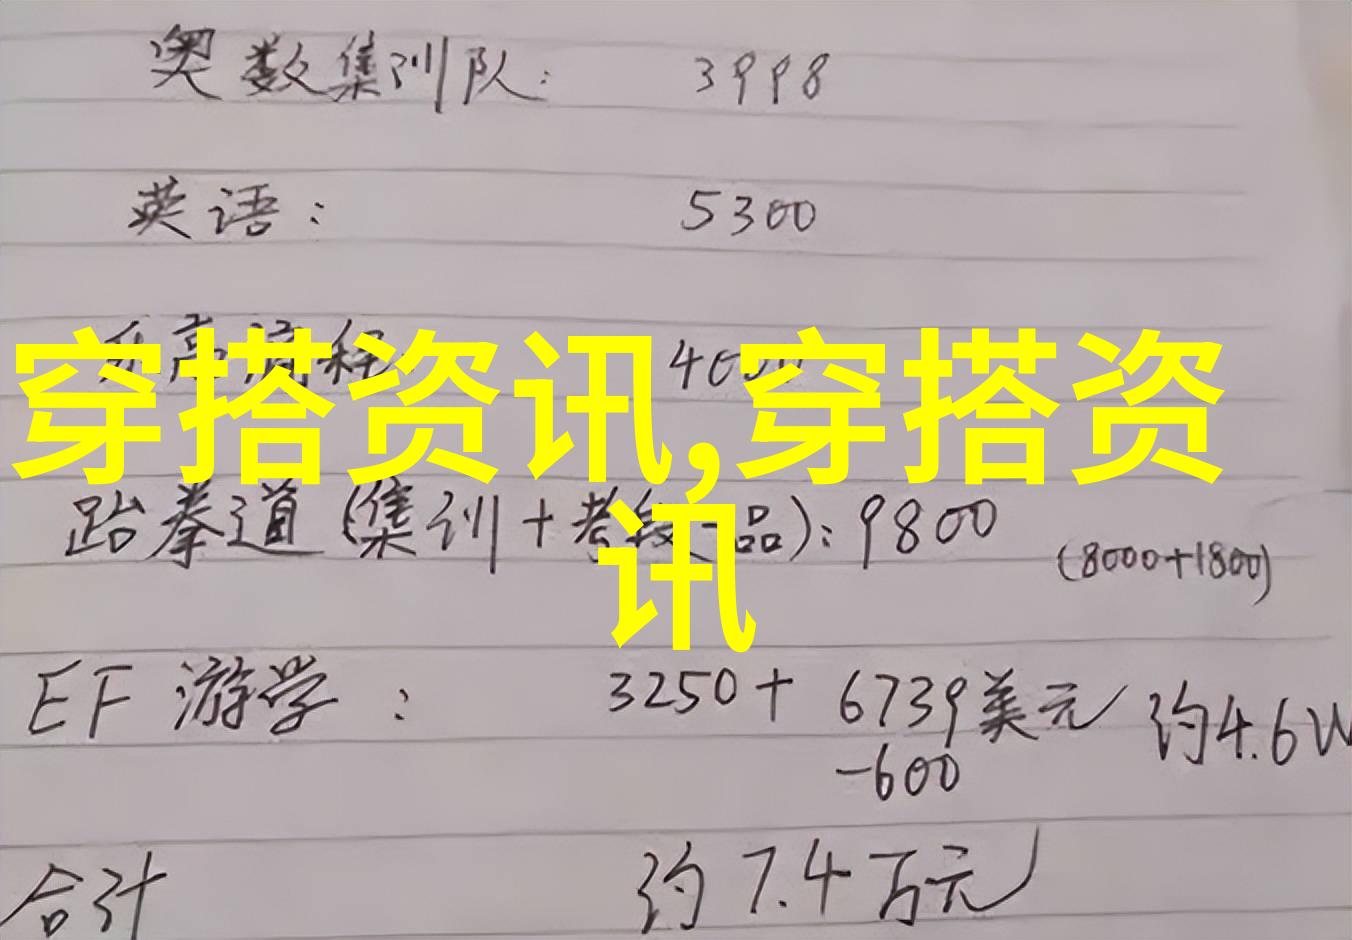 奥数集训队: 3998
英语: 5300
4000
穿搭资讯,穿搭资
讯
跆拳道(集训+考级一品): 9800 (8000+1800)
EF 游学: 3250+ 6739美元 约4.6W
-600
合计 约7.4万元